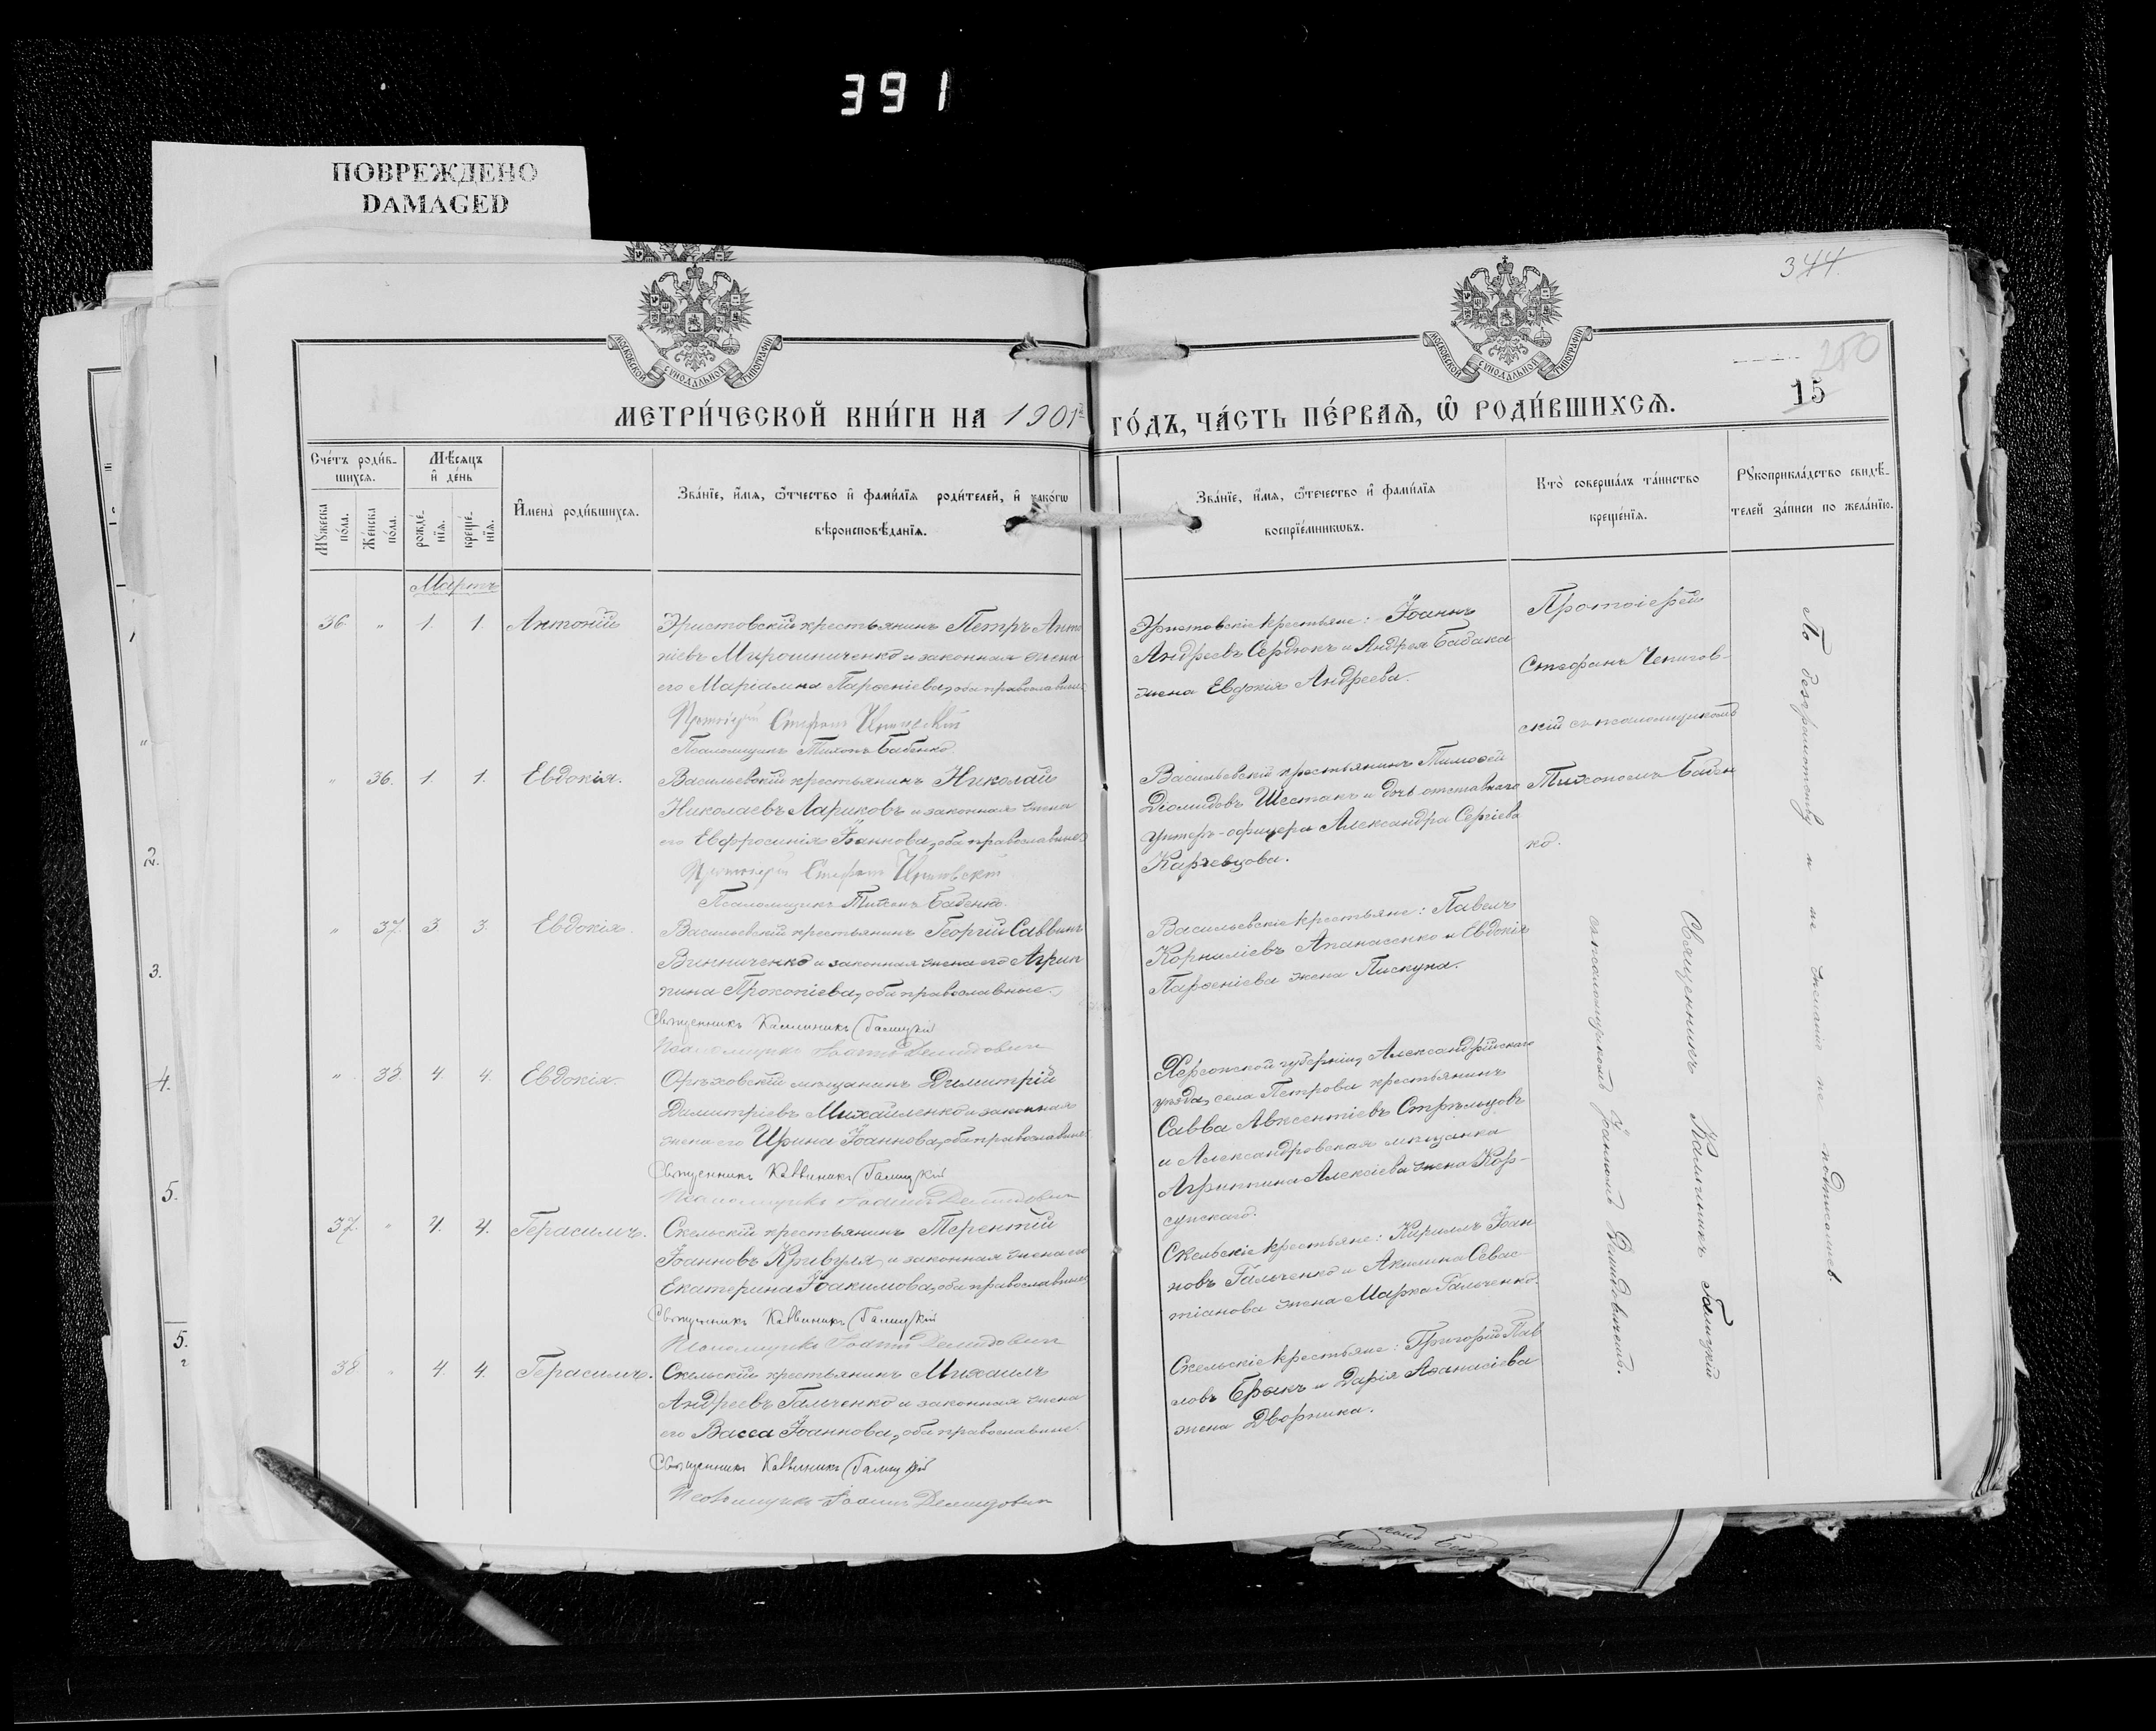 391
ПОВРЕЖДЕНО
DAMAGED
344.
250
15
МОСКОВСКОЙ СѴНОДАЛЬНОЙ ТИПОГРАФИИ
МОСКОВСКОЙ СѴНОДАЛЬНОЙ ТИПОГРАФИИ
МЕТРИ́ЧЕСКОЙ КНИ́ГИ НА 1901й ГО́ДЪ, ЧА́СТЬ ПЕ́РВАѦ, Ѽ РОДИ́ВШИХСѦ.
Сче́тъ роди́в-
шихсѧ.
Мѣ́сѧцъ
и҆ де́нь
Мꙋ́жеска
по́ла.
Же́нска
по́ла.
рожде́-
нїѧ.
креще́-
нїѧ.
И҆мена̀ роди́вшихсѧ.
Зва́нїе, и҆́мѧ, ѻ҆́тчество и҆ фами́лїѧ роди́телей, и҆ како́гѡ
вѣроисповѣ́данїѧ.
Зва́нїе, и҆́мѧ, ѻ҆те́чество и҆ фами́лїѧ
воспрїе́мникѡвъ.
Кто̀ соверша́лъ та́инство
креще́нїѧ.
Рꙋкоприкла́дство свидѣ́-
телей за́писи по жела́нїю.
Мартъ
36. " 1. 1. Антоній
Эристовскій крестьянинъ Петръ Анто
ніевъ Мирошниченко и законная жена
его Маріамна Парѳеніева, оба православные
Протоіерей Стефанъ
Псаломщикъ Тихонъ Бабенко.
Эристовскіе крестьяне: Іоаннъ
Андреевъ Сердюкъ и Андрея Бабака
жена Евдокія Андреева.
Протоіерей
Стефанъ
скій съ псаломщикомъ
Тихономъ Бабен
ко.
" 36. 1. 1. Евдокія.
Васильевскій крестьянинъ Николай
Николаевъ Лариковъ и законная жена
его Евфросинія Іоаннова, оба православные
Протоіерей Стефанъ
Псаломщикъ Тихонъ Бабенко.
Васильевскій крестьянинъ Тимоѳей
Діомидовъ Шестакъ и дочь отставного
унтеръ-офицера Александра Сергіева
Каржевцова.
" 37. 3. 3. Евдокія.
Васильевскій крестьянинъ Георгій Саввинъ
Винниченко и законная жена его Агрип
пина Прокопіева, оба православные.
Священникъ Каллиникъ Галицкій
Псаломщикъ Іоаннъ Демидовичъ
Васильевскіе крестьяне: Павелъ
Корниліевъ Апанасенко и Евдокія
Парѳеніева жена Пискуна.
" 38. 4. 4. Евдокія.
Орѣховскій мѣщанинъ Димитрій
Димитріевъ Михайленко и законная
жена его Ирина Іоаннова, оба православные.
Священникъ Каллиникъ Галицкій
Псаломщикъ Іоаннъ Демидовичъ
Херсонской губерніи, Александрійскаго
уѣзда, села Петрова крестьянинъ
Савва Авксентіевъ Стрѣльцовъ
и Александровская мѣщанка
Агриппина Алексіева жена Кор-
сунскаго.
37. " 4. 4. Герасимъ.
Скельскій крестьянинъ Терентій
Іоанновъ Кривуля и законная жена его
Екатерина Іоакимова, оба православные
Священникъ Каллиникъ Галицкій
Псаломщикъ Іоаннъ Демидовичъ
Скельскіе крестьяне: Кириллъ Іоан
новъ Гальченко и Акилина Севас-
тіанова жена Марка Гальченко.
38. " 4. 4. Герасимъ.
Скельскій крестьянинъ Михаилъ
Андреевъ Гальченко и законная жена
его Васса Іоаннова, оба православные.
Священникъ Каллиникъ Галицкій
Псаломщикъ Іоаннъ Демидовичъ
Скельскіе крестьяне: Григорій Пав
ловъ Ерыкъ и Дарія Аѳанасіева
жена Дворника.
Священникъ Каллиникъ Галицкій
съ псаломщикомъ Іоанномъ Демидовичемъ.
По безграмотству и не желанію не подписались.
1
"
2.
3.
4.
5.
5.